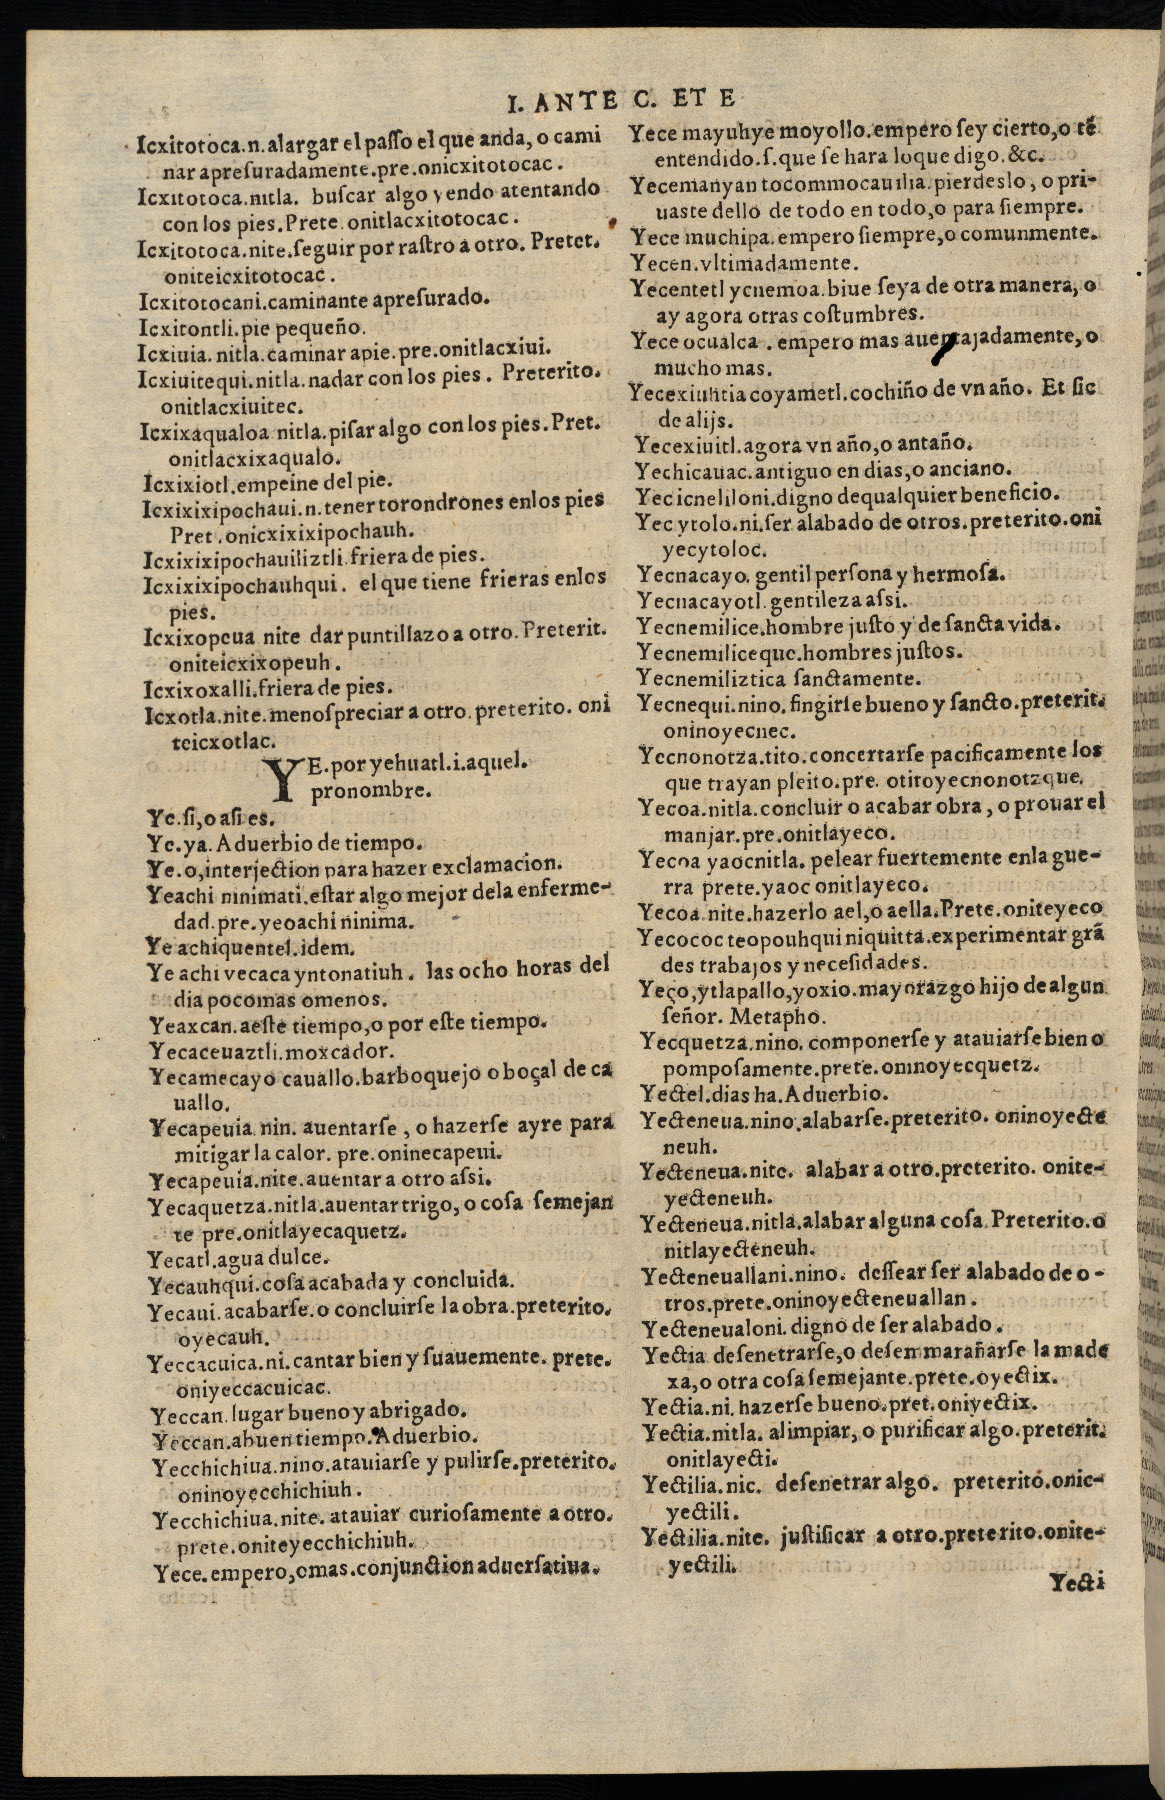 I. ANTE C. ET E
Icxitotoca.n.alargar el paſſo el que anda, o cami
nar apreſuradamente.pre.onicxitotocac.
Icxitotoca.nitla. buſcar algo yendo atentando
con los pies.Prete.onitlacxitotocac.
Icxitotoca.nite.ſeguir por raſtro a otro. Pretet.
oniteicxitotocac.
Icxitotocani.caminante apreſurado.
Icxitontli.pie pequeño.
Icxiuia.nitla.caminar apie.pre.onitlacxiui.
Icxiuitequi.nitla.nadar con los pies. Preterito.
onitlacxiuitec.
Icxixaqualoa nitla.piſar algo con los pies.Pret.
onitlacxixaqualo.
Icxixiotl.empeine del pie.
Icxixixipochaui.n.tener torondrones enlos pies
Pret.onicxixixipochauh.
Icxixixipochauiliztli.friera de pies.
Icxixixipochauhqui. el que tiene frieras enlos
pies.
Icxixopeua nite dar puntillazo a otro.Preterit.
oniteicxixopeuh.
Icxixoxalli.friera de pies.
Icxotla.nite.menoſpreciar a otro.preterito. oni
teicxotlac.
YE.por yehuatl.i.aquel.
pronombre.
Ye.ſi,o aſi es.
Ye.ya.Aduerbio de tiempo.
Ye.o,interjection para hazer exclamacion.
Yeachi ninimati.eſtar algo mejor dela enferme-
dad.pre.yeoachi ninima.
Ye achiquentel.idem.
Ye achi vecaca yntonatiuh. las ocho horas del
dia pocomas omenos.
Yeaxcan.aeſte tiempo,o por eſte tiempo.
Yecaceuaztli.moxcador.
Yecamecayo cauallo.barboquejo o boçal de ca
uallo.
Yecapeuia.nin. auentarſe, o hazerſe ayre para
mitigar la calor. pre.oninecapeui.
Yecapeuia.nite.auentar a otro aſsi.
Yecaquetza.nitla.auentar trigo, o coſa ſemejan
te pre.onitlayecaquetz.
Yecatl.agua dulce.
Yecauhqui.coſa acabada y concluida.
Yecaui.acabarſe.o concluirſe la obra.preterito.
oyecauh.
Yeccacuica.ni.cantar bien y ſuauemente. prete.
oniyeccacuicac.
Yeccan.lugar bueno y abrigado.
Yeccan.abuen tiempo.Aduerbio.
Yecchichiua.nino.atauiarſe y pulirſe.preterito.
oninoyecchichiuh.
Yecchichiua.nite. atauiar curioſamente a otro.
prete.oniteyecchichiuh.
Yece.empero,omas.conjunction aduerſatiua.
Yece mayuhye moyollo.empero ſey cierto,o tẽ
entendido.ſ.que ſe hara loque digo.&c.
Yecemanyan tocommocauilia.pierdeslo, o pri-
uaste dello de todo en todo,o para ſiempre.
Yece muchipa.empero ſiempre,o comunmente.
Yecen.vltimadamente.
Yecentetl ycnemoa.biue ſeya de otra manera, o
ay agora otras coſtumbres.
Yece ocualca. empero mas auentajadamente, o
mucho mas.
Yecexiuhtia coyametl.cochiño de vn año. Et ſic
de alijs.
Yecexiuitl.agora vn año,o antaño.
Yechicauac.antiguo en dias,o anciano.
Yecicneliloni.digno dequalquier beneficio.
Yecytolo.ni.ſer alabado de otros.preterito.oni
yecytoloc.
Yecnacayo.gentil perſona y hermoſa.
Yecnacayotl.gentileza aſsi.
Yecnemilice.hombre juſto y de ſancta vida.
Yecnemiliceque.hombres juſtos.
Yecnemiliztica ſanctamente.
Yecnequi.nino.fingirſe bueno y ſancto.preterit.
oninoyecnec.
Yecnonotza.tito.concertarſe pacificamente los
que trayan pleito.pre. otitoyecnonotzque.
Yecoa.nitla.concluir o acabar obra, o prouar el
manjar.pre.onitlayeco.
Yecoa yaocnitla. pelear fuertemente enla gue-
rra prete.yaoc onitlayeco.
Yecoa.nite.hazerlo ael,o aella.Prete.oniteyeco
Yecococ teopouhqui niquitta.experimentar grã
des trabajos y neceſidades.
Yeço,ytlapallo,yoxio.mayorazgo hijo de algun
ſeñor. Metapho.
Yecquetza.nino.componerſe y atauiarſe bien o
pompoſamente.prete.oninoyecquetz.
Yectel.dias ha.Aduerbio.
Yecteneua.nino.alabarſe.preterito. oninoyecte
neuh.
Yecteneua.nite. alabar a otro.preterito. onite-
yecteneuh.
Yecteneua.nitla.alabar alguna coſa.Preterito.o
nitlayecteneuh.
Yecteneuallani.nino. deſſear ſer alabado de o-
tros.prete.oninoyecteneuallan.
Yecteneualoni.digno de ſer alabado.
Yectia deſenetrarſe,o deſenmarañarſe la made
xa,o otra coſa ſemejante.prete.oyectix.
Yectia.ni.hazerſe bueno.pret.oniyectix.
Yectia.nitla. alimpiar, o purificar algo.preterit.
onitlayecti.
Yectilia.nic. deſenetrar algo. preterito.onic-
yectili.
Yectilia.nite. juſtificar a otro.preterito.onite-
yectili.
Yecti